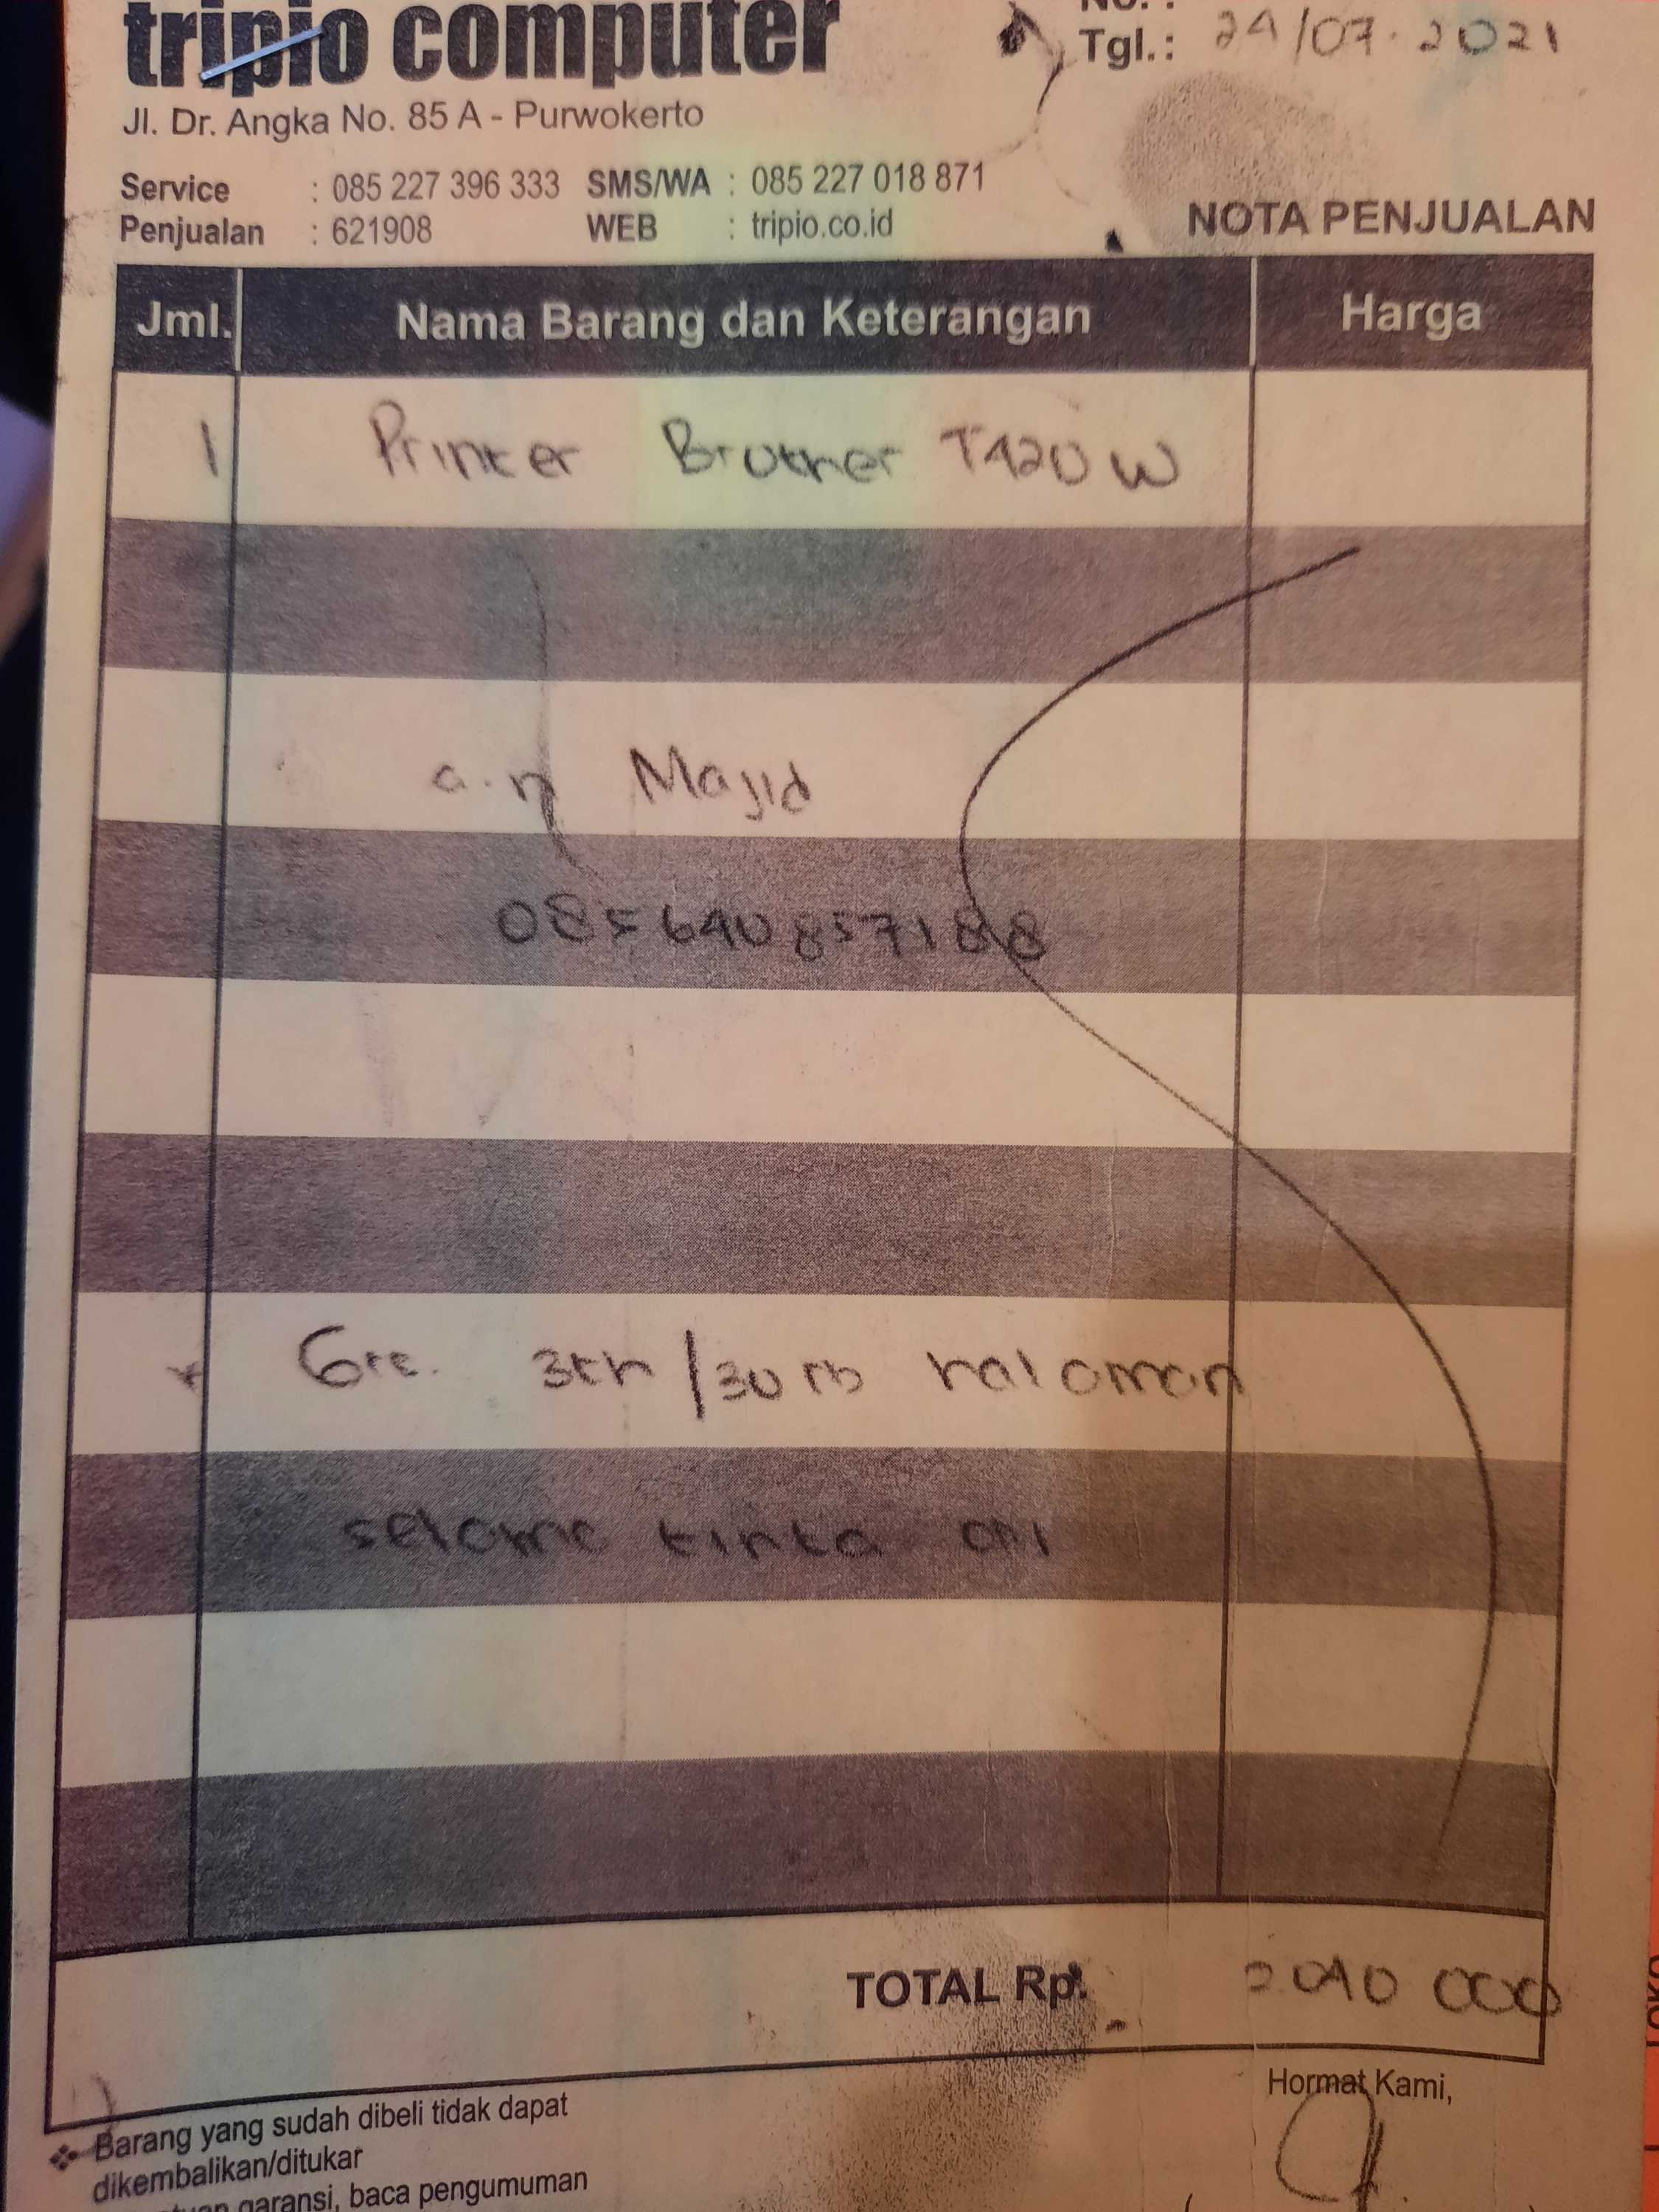 tripio computer
No. :
Tgl.: 24/07.2021
Jl. Dr. Angka No. 85 A - Purwokerto
Service : 085 227 396 333 SMS/WA : 085 227 018 871
Penjualan : 621908 WEB : tripio.co.id
NOTA PENJUALAN
Jml. Nama Barang dan Keterangan Harga
1 Printer Brother T420W
a.n Majid
085640857188
* Grc. 3th/30rb halaman
selama tinta ori
TOTAL Rp. 2.040 000
Hormat Kami,
Barang yang sudah dibeli tidak dapat
dikembalikan/ditukar
garansi, baca pengumuman